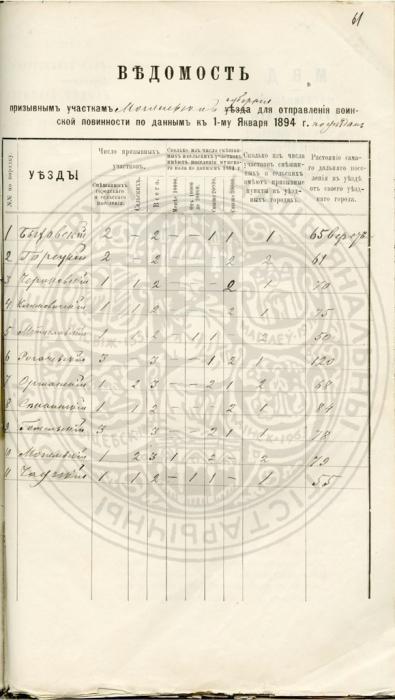 61
ВѢДОМОСТЬ
губерніи
призывнымъ участкамъ Могилевской уѣзда для отправленія воин-
ской повинности по даннымъ къ 1-му Января 1894 г. по уѣздамъ
№№ по порядку.
УѢЗДЫ
Число призывныхъ участковъ.
Смѣшанныхъ городскаго и сельскаго населенія.
Сельскихъ.
Всего.
Сколько изъ числа смѣшанныхъ и сельскихъ участковъ имѣютъ населенія мужскаго пола по даннымъ 1894 г.
Сколько изъ числа участковъ смѣшанныхъ и сельскихъ имѣютъ призывные пункты въ уѣздныхъ городахъ.
Растояніе самаго дальняго поселенія въ уѣздѣ отъ своего уѣзднаго города.
1 Быховскій 2 – 2 – – 1 1 1 65 верстъ
2 Горецкій 2 – 2 2 2 61
3 Чериковскій 1 1 2 – – 2 1 70
4 Климовичскій 1 1 2 2 1 75
5 Мстиславскій 1 2 – 1 1 2 50
6 Рогачевскій 3 – 3 – – 1 2 1 120
7 Оршанскій 1 2 3 – – 2 1 2 68
8 Сѣннинскій 1 1 2 – – 2 1 84
9 Гомельскій 3 – 3 – – 2 1 1 78
10 Могилевскій 1 2 3 1 – 2 – 2 79
11 Чаусскій 1 1 2 – 1 1 – 1 55